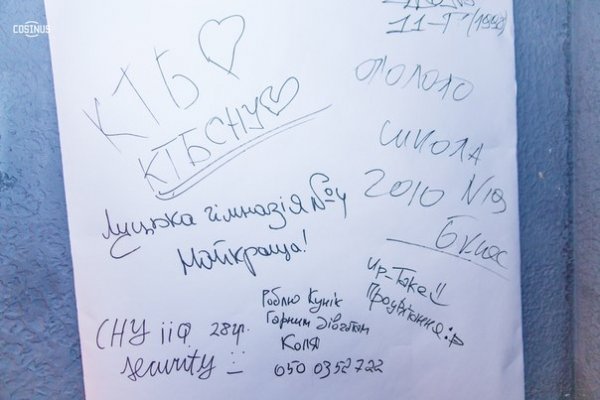 COSINUS
11-Г (1998)
КТБ
КТБ СНУ
ШКОЛА
2010 N19
6 клас
Луцька гімназія №4
Найкраща!
ір-Таке!!
СНУ ііф 28гр.
security
Роблю Кунік
Гарним Дівчатам
Коля
050 0352722